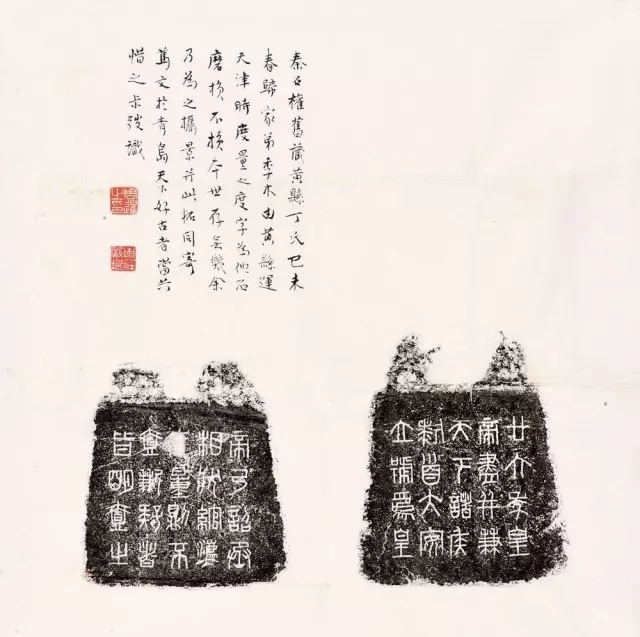 秦石權舊藏黄縣丁氏己未
春歸家弟季木由黄縣運
天津時度量之度字為他石
磨損不損本世存無幾余
乃為之攝景并此拓同寄
文於青島天下好古者當共
惜之尗弢識
廿六年皇
帝盡并兼
天下諸侯
黔首大安
立號為皇
帝乃詔丞
相狀綰灋
量則不
壹歉疑者
皆明壹之